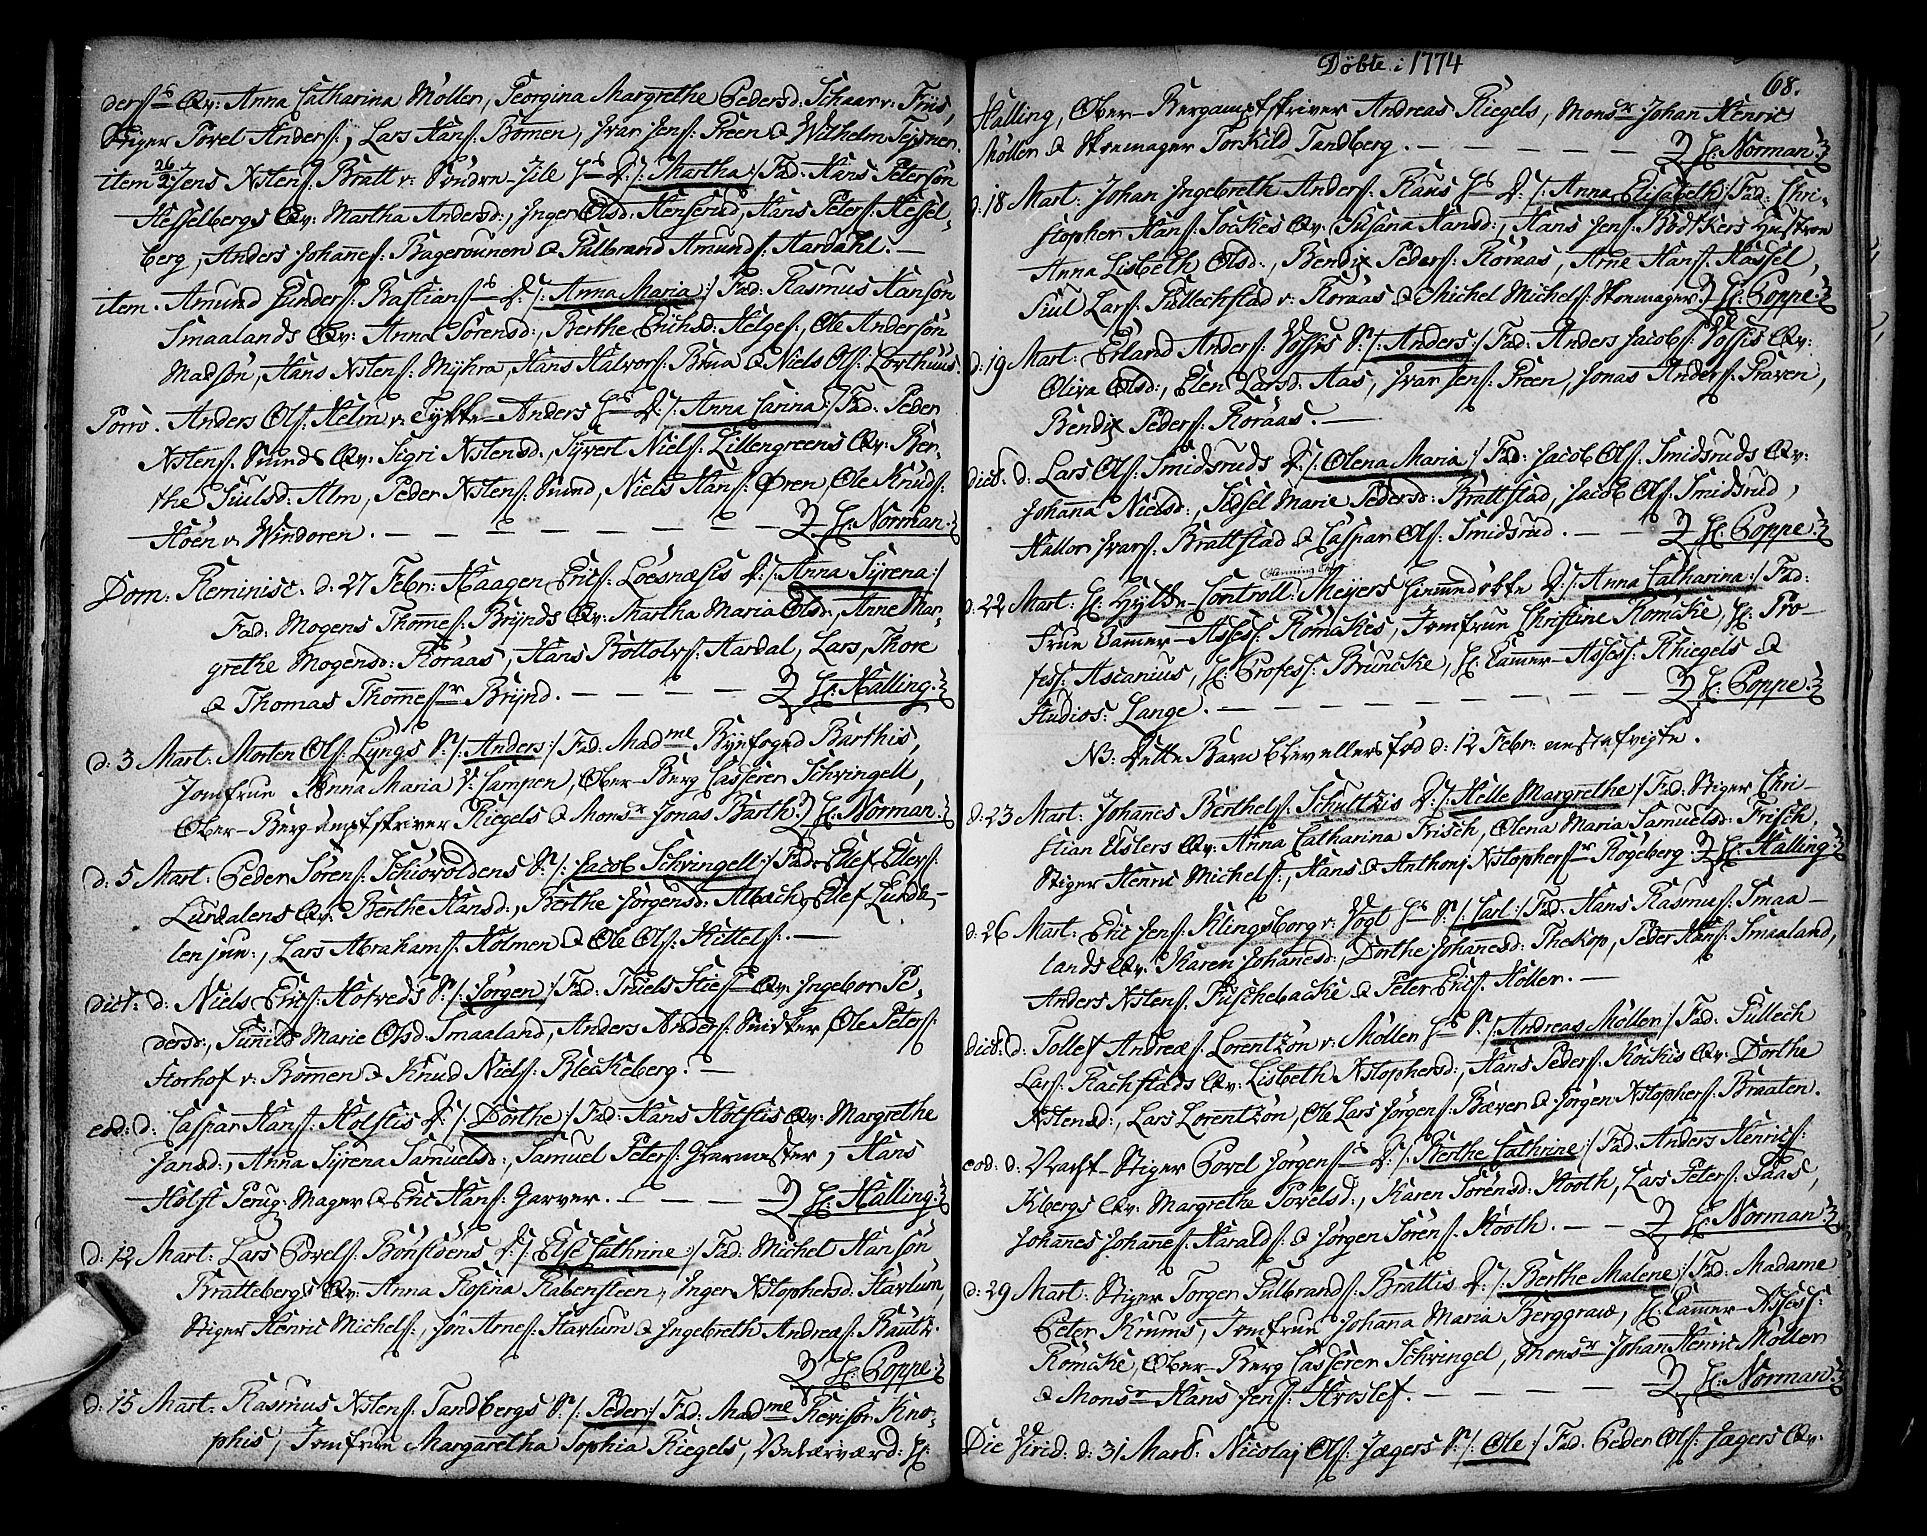 ders:s Qv: Anna Catharina Möller, Georgina Margrethe Pedersd: Schaar v: Friis,
Stiger Povel Anders:, Lars Hans: Bömen, Ivar Jens: Preen & Wilhelm Teisner.
item 26/2 Jens Xstens: Bratt v: Söndre-Jile H:s D: /: Martha :/ Fad: Hans Peterson
Hesselbergs Qv: Martha Andersd:, Inger Olsd: Henserud, Hans Peters: Hessel-
berg, Anders Johannes: Bagerovnen & Gulbrand Amunds: Hardahl. —
item. Amund Gunders: Bastians:s D: /: Anna Maria :/ Fad: Rasmus Hanson
Smaalands Qv: Anna Sörensd:, Berthe Erichsd: Helges:, Ole Anderson
Madsön, Hans Xstens: Myhra, Hans Halvors: Brua & Niels Ols: Lorthuus.
Porro. Anders Ols: Helm v: Tykke-Anders H:s D: /: Anna Carina :/ Fad: Peder
Xstens: Sunds Qv: Sigri Xstensd:, Syvert Niels: Lillengreens Qv: Ber-
the Juulsd: Alm, Peder Xstens: Sund, Niels Hans: Øren, Ole Knuds:
Höen v: Windoren. — — — — — — H: Norman.
Dom: Reminisc: d: 27 Febr: Haagen Erics: Loesnæsis D: /: Anna Syrena :/
Fad: Mogens Thommes: Brynds Qv: Martha Maria Olsd:, Anne Mar-
grethe Mogensd: Röraas, Hans Bottolvs: Hardal, Lars, Thore
& Thomas Thommes:r Brynd. — — — — H: Halling.
d: 3 Mart: Morten Ols: Lyngs S: /: Anders :/ Fad: Mad:me Byefoged Barthis,
Jomfrue Anna Maria v: Campen, Ober-Berg Casserer Schvingell,
Ober-Berg amptskriver Riegels & Mons:r Jonas Barth. H: Norman.
d: 5 Mart: Peder Sörens: Schiövoldens S: /: Jacob Schvingell :/ Fad: Ellef Ellefs:
Lurdalens Qv: Berthe Hansd:, Berthe Jörgensd: Albach, Ellef Lurda-
len jun:, Lars Abrahams: Holmen & Ole Ols: Kittels: —
dict: d: Niels Erics: Hofveds S: /: Jörgen :/ Fad: Truels Qv: Ingebor Pe-
dersd:, Gunild Marie Olsd: Smaaland, Anders Anders: Snidker, Ole Peters:
Storhof v: Bömen & Knud Niels: Bleckeberg. —
eod: d: Caspar Hans: Holstis D: /: Dorthe :/ Fad: Hans Holstis Qv: Margrethe
Jansd:, Anna Syrena Samuelsd:, Samuel Peters: Garmester, Hans
Holst Peruq: Mager & Eric Hans: Garver. — — — H: Halling.
d: 12 Mart: Lars Povels: Bönsidens D: /: Else Cathrine :/ Fad: Michel Hansön
Bratteberg Qv: Anna Rosina Rabensteen, Inger Xstophersd: Havlum,
Stiger Henric Michels:, Jon Arnes: Havlum & Ingebreth Andreas: Bautz.
H: Poppe.
d: 15 Mart: Rasmus Xstens: Tandbergs S: /: Peder :/ Fad: Mad:me Revisor Kno-
phis, Jomfrue Margaretha Sophia Riegels, Velærværd: H:
Döbte i 1774
68.
Halling, Ober-Bergamptskriver Andreas Riegels, Mons:r Johan Henric
Möller & Skomager Torkild Tandberg. — — — — — H: Norman.
d: 18 Mart: Johan Ingebreth Anders: Raus H:s D: /: Anna Elisabeth :/ Fad: Chri-
stopher Hans: Sockis Qv: Susana Hansd:, Hans Jens: Bödtkers Hustroe
Anna Lisbeth Olsd:, Bendix Peders: Röraas, Arne Hans: Hassel,
Juul Lars: Gullechstad v: Röraas & Michel Michels: Skomager. H: Poppe.
d: 19 Mart: Erland Anders: Vossis S: /: Anders :/ Fad: Anders Jacobs: Vossis Qv:
Oliva Olsd:, Elen Larsd: Aas, Ivar Jens: Preen, Jonas Anders: Graven,
Bendix Peders: Röraas. —
dict: d: Lars Ols: Smidsruds D: /: Olena Maria :/ Fad: Jacob Ols: Smidsruds Qv:
Johana Nielsd:, Sidsel Marie Pedersd: Brattstad, Jacob Ols: Smidsrud,
Hallor Ivars: Brattstad & Caspar Ols: Smidsrud. — — H: Poppe.
d: 22 Mart: H: Hytte-Controll: Meyers hiemmedöbte D: /: Anna Catharina :/ Fad:
Frue Cammer-Assess: Römckes, Jomfrue Christine Römcke, H: Pro-
fess: Ascanius, H: Profess: Brüncke, H: Cammer-Assess: Rhiegels &
Studios: Lange. — — — — — — — — H: Poppe.
NB: Dette Barn blev ellers fod d: 12 Febr: næstafvigte.
d: 23 Mart: Johanes Berthels: Schultzis D: /: Helle Margrethe :/ Fad: Stiger Chri-
stian Elsters Qv: Anna Catharina Frisch, Olena Maria Samuelsd: Frisch,
Stiger Henric Michels:, Hans & Anthonj Xstophers:r Rogeberg. H: Halling.
d: 26 Mart: Eric Jens: Klingsborg v: Vogt H:s S: /: Carl :/ Fad: Hans Rasmus: Smaa-
lands Qv: Karen Johanesd:, Dorthe Johanesd: Theskop, Peder Hans: Smaaland,
Anders Xstens: Fuschebacke & Peter Erics: Holler. —
dict: d: Tollef Andreæs: Lorentzön v: Möller H:s S: /: Andreas Möller :/ Fad: Gullech
Lars: Rachstads Qv: Lisbeth Xstophersd:, Hans Peders: Kockis Qv: Dorthe
Xstensd:, Lars Lorentzön, Ole Lars: Jörgens: Bæver & Jörgen Xstophers: Braaten.
eod: d: Vracht-Stiger Povel Jörgens:s D: /: Berthe Cathrine :/ Fad: Anders Henrics:
Kbergs Qv: Margrethe Povelsd:, Karen Sörensd: Hooth, Lars Peters: Gaas,
Johannes Johannes: Haralds: & Jörgen Sörens: Hooth. — — H: Norman.
d: 29 Mart: Stiger Torger Gulbrands: Brattis D: /: Berthe Malene :/ Fad: Madame
Peter Krums, Jomfrue Johana Maria Berggraw, H: Cammer-Assess:
Römcke, Ober-Berg Casserer Schvingel, Mons:r Johan Henric Möller
& Mons:r Hans Jens: Kroslef. — — — — — H: Norman.
Die Virid: d: 31 Mart: Nicolaj Ols: Jægers S: /: Ole :/ Fad: Peder Ols: Jægers Qv: